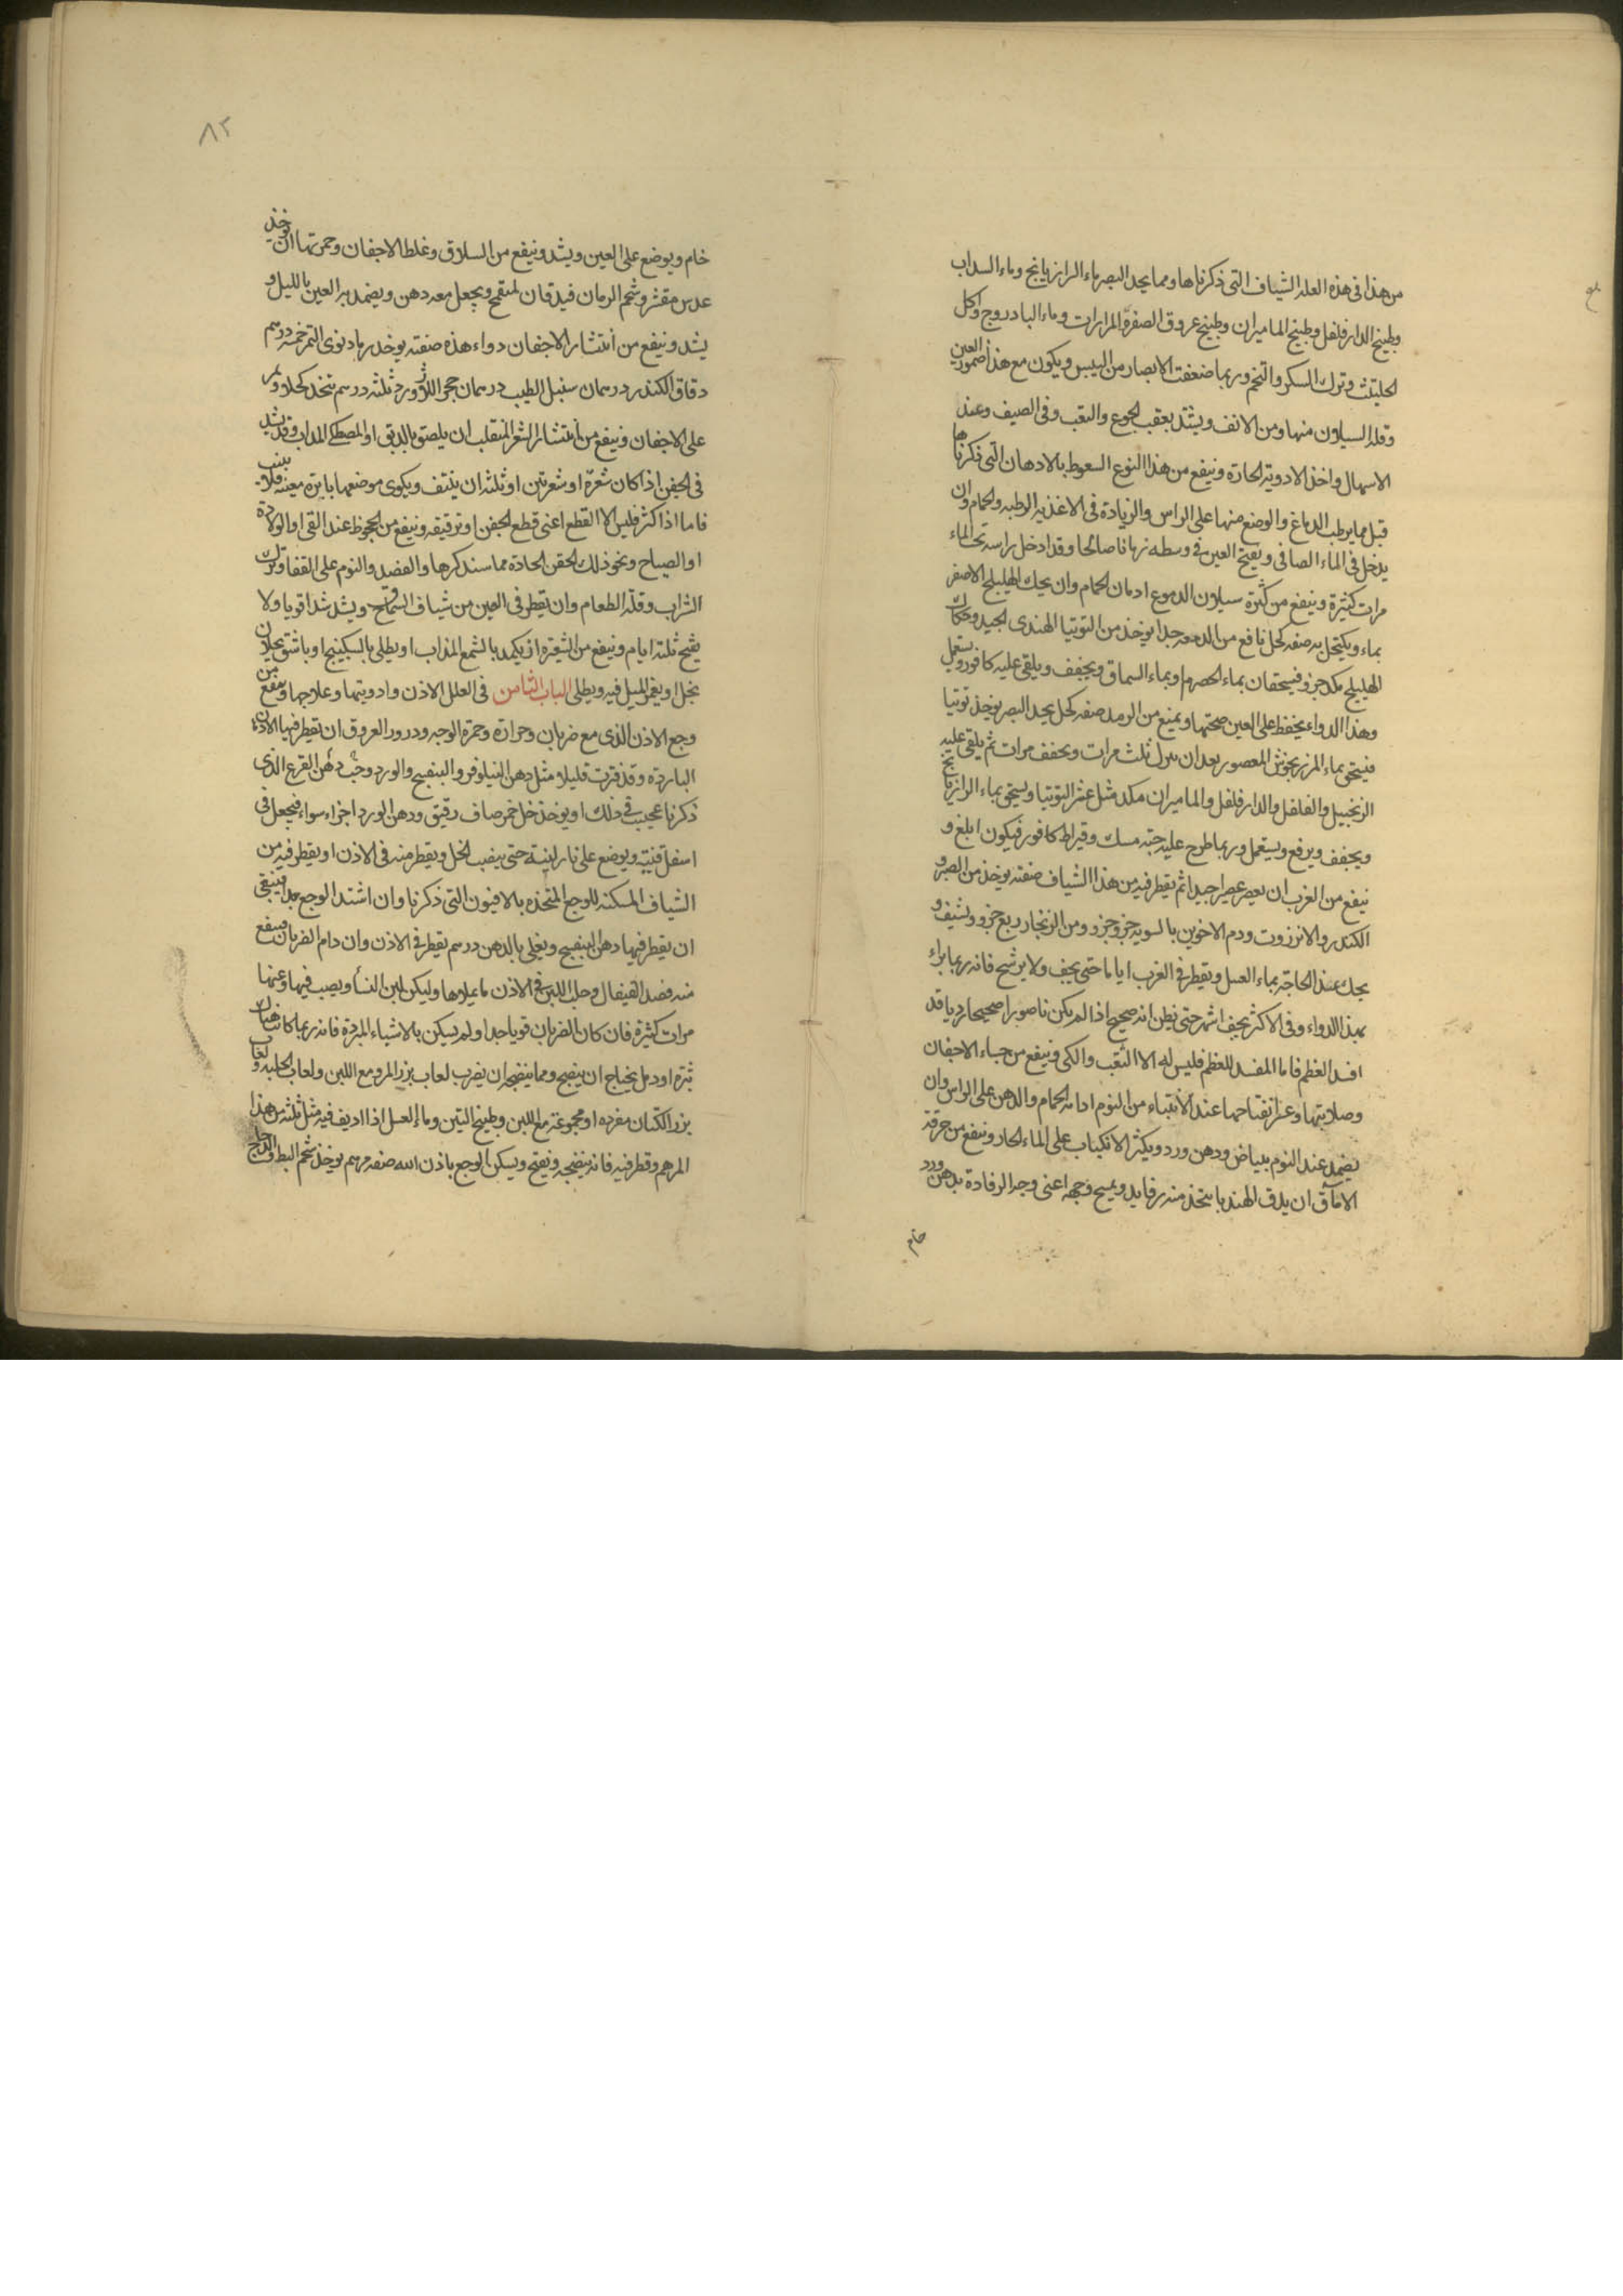 من هذا فى هذه العله الشياف التى ذكرناها ومما يحد البصر ماء الرازيانج وماء السداب
وطبيخ الدارفلفل وطبيخ الماميران وطبيخ عروق الصفر المرارات وماء البادروج واكل
الحليتث وترك السكر والتخم وربما ضعفت الابصار من اليبس ويكون مع هذا ضمور العين
وقله السيلان منها ومن الانف ويشتد بعقب الجوع والتعب وفى الصيف وعند
الاسهال واخذ الادويه الحارة وينفع من هذا النوع السعوط بالادهان التى ذكرناها
قبل مما يرطب الدماغ والوضع منها على الراس والزيادة فى الاغذيه الرطبه والحمام وان
يدخل فى الماء الصافى ويفتح العين فى وسطه زمانا صالحا وقد ادخل راسه تحت الماء
مرات كثيرة وينفع من كثرة سيلان الدموع ادمان الحمام وان يحك الهليلج الاصفر
بماء ويكتحل به صفه كحل نافع من الدمعه جدا يوخذ من التوتيا الهندى الجيد وحكاك
الهليلج مكد جزو فيسحقان بماء الحصرم او بماء السماق ويجفف ويلقى عليه كافور ويستعمل
وهذا الدواء يحفظ على العين صحتها ويمنع من الرمد صفه كحل يحد البصر يوخذ توتيا
فيسحق بماء المرزنجوش المعصور بعد ان ثلث مرات ويجفف مرات ثم يلقى عليه
الزنجبيل والفلفل والدارفلفل والماميران مكد مثل عشر التوتيا ويسحق بماء الرازيانج
ويجفف ويرفع ويستعمل وربما طرح عليه حبة مسك وقيراط كافور فيكون ابلغ و
ينفع من الغرب ان يعصر عصرا جيدا ثم يقطر فيه من هذا الشياف صفته يوخذ من الصبر و
الكندر والانزروت ودم الاخوين بالسويه جزو جزو ومن الزنجار ربع جزو ويشيف و
يحك عند الحاجه بماء العسل ويقطر فى الغرب اياما حتى يجف ولا يرشح فانه ربما براء
بهذا الدواء وفى الاكثر يجف اشهر حتى يظن انه صحيح اذا لم يكن ناصورا صحيحا رديا قد
افسد العظم فاما المفسد للعظم فليس له الا الثقب والكى وينفع من جساء الاجفان
وصلابتها وعسر انفتاحها عند الانتباه من النوم ادامه الحمام والدهن على الراس وان
يضمد عند النوم ببياض ودهن ورد ويكثر الانكباب على الماء الحار وينفع من حرقة
الامآق ان يدق الهندبا يتخذ منه رفايد ويمسح وجهه اعنى وجه الرفادة بدهن ورد
خام
٨٢
خام ويوضع على العين ويشد وينفع من السلاق وغلظ الاجفان وحمرتها ان يوخذ
عدس مقشر وشحم الرمان فيدقان بميفختج ويجعل معه دهن ويضمد به العين بالليل و
يشد وينفع من انتشار الاجفان دواء هذه صفته يوخذ رماد نوى التمر خمسه درسم
دقاق الكندر درسمان سنبل الطيب درسمان حجر اللازورد ثلثه درسم يتخذ كحلا ويمر
على الاجفان وينفع من انتشار الشعر المنقلب ان يلصق بالدبق او المصطكى المذاب وقد يشد
فى الجفن اذا كان شعرة او شعرتين او ثلثه ان ينتف ويكوى موضعها بابرة معينه فلا ينبت
فاما اذا كثر فليس الا القطع اعنى قطع الجفن او ترقيقه وينفع من الجحوظ عند القى او الولادة
او الصياح ونحو ذلك الحقن الحادة مما سنذكرها والفصد والنوم على القفا وترك
الشراب وقلة الطعام وان يقطر فى العين من شياف السماق ويشد شدا قويا ولا
يفتح ثلثه ايام وينفع من الشعيره ان يكمد بالشمع المذاب او يطلى بالسكبينج او باشق يحلان
بخل او يغمس الميل فيه ويطلى الباب الثامن فى العلل الاذن وادويتها وعلاجها وينفع من
وجع الاذن الذى مع ضربان وحرارة وحمرة الوجه ودرور العروق ان يقطر فيها الادهان
الباردة وقد فترت قليلا مثل دهن النيلوفر والبنفسج والورد وحب دهن القرع الذى
ذكرنا عجيب فى ذلك او يوخذ خل خمر صاف رقيق ودهن الورد اجزاء سواء فيجعل فى
اسفل قنينة ويوضع على نار لينة حتى ينضب الخل ويقطر منه فى الاذن او يقطر فيه من
الشياف المسكنه للوجع المتخذه بالافيون التى ذكرنا وان اشتد الوجع جدا فينبغى
ان يقطر فيها دهن البنفسج ويغلى بالدهن درسم يقطر فى الاذن وان دام الضربان فينفع
منه فصد القيفال وحلب اللبن فى الاذن ما يملاها وليكن لبن النسأ ويصب فيها وعنها
مرات كثيرة فان كان الضربان قويا جدا ولم يسكن بالاشياء المبردة فانه ربما كانت هناك
بثرة او دمل يحتاج ان ينضج ومما ينضجه ان يضرب لعاب بزر المرو مع اللبن ولعاب الحلبه ولعاب
بزر الكتان مفرده او مجموعة مع اللبن وطبيخ التين وماء العسل اذا اديف فيه مثل ثلثه من هذا
المرهم وقطر فيه فانه ينضجه ويفتح ويسكن الوجع باذن الله صفه مرهم يوخذ شحم البط والدجاج